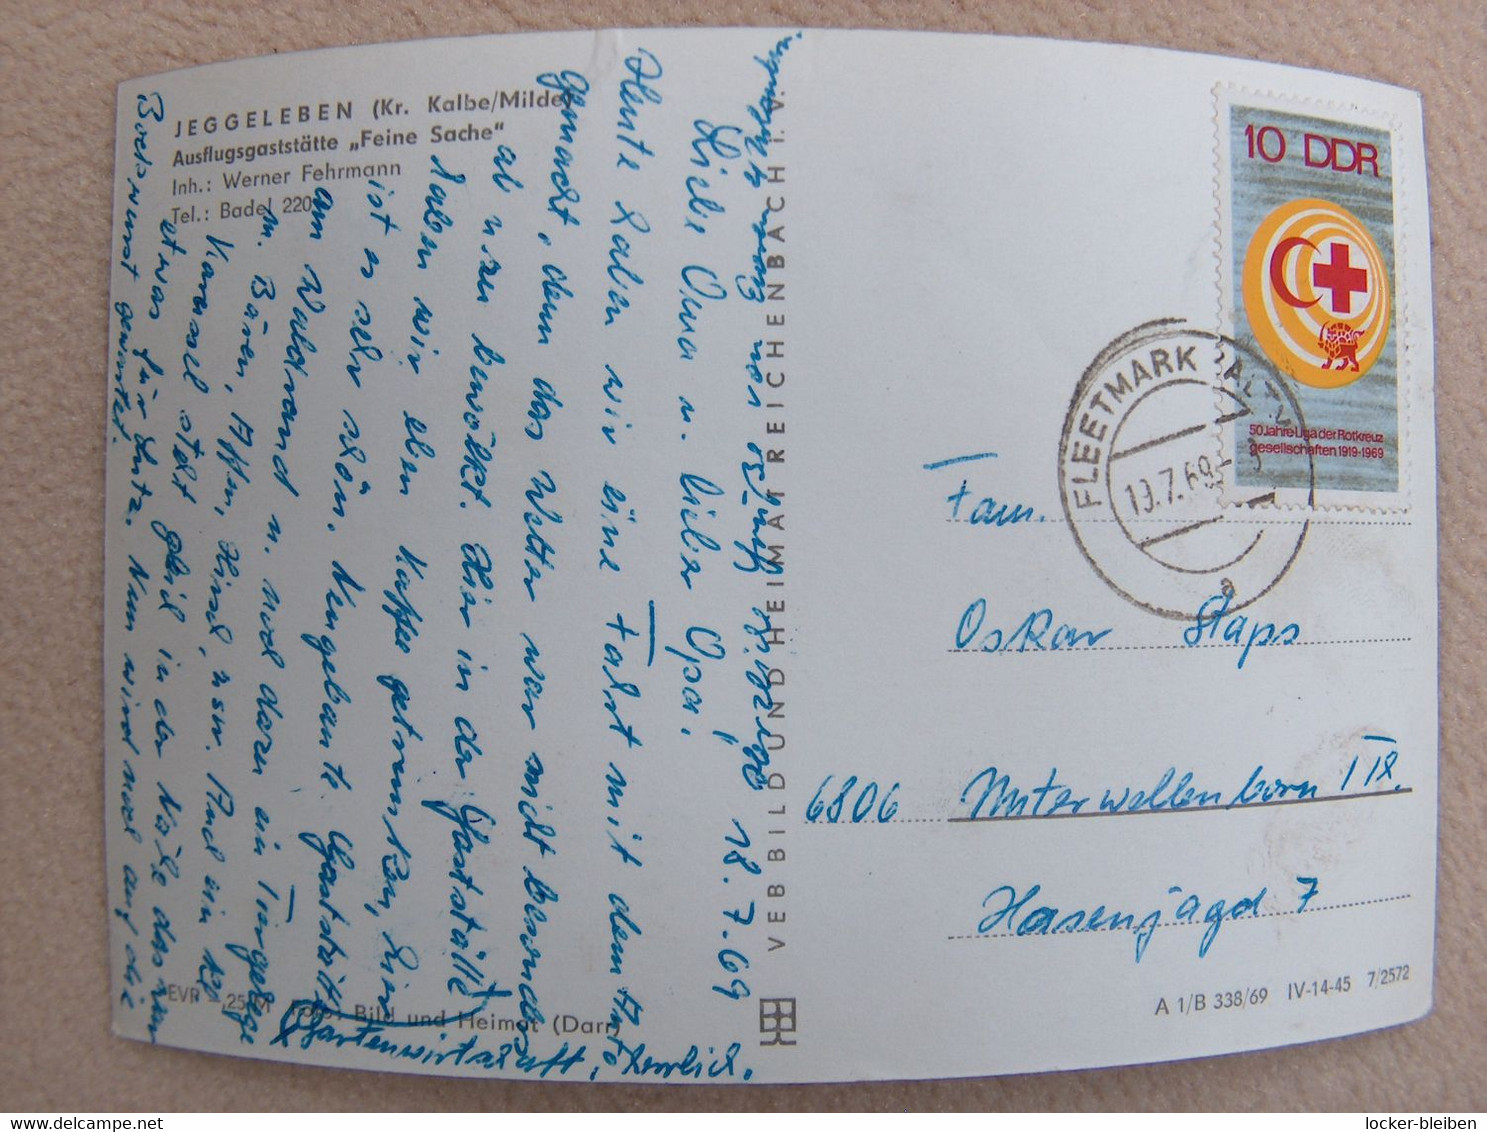 JEGGELEBEN (Kr. Kalbe/Milde)
Ausflugsgaststätte „Feine Sache"
Inh.: Werner Fehrmann
Tel.: Badel 220
18.7.69
Liebe Oma u. lieber Opa!
Heute haben wir eine Fahrt mit dem Auto
gemacht, denn das Wetter war nicht besonders
ab u. zu bewölkt. Hier in der Gaststätte
haben wir eben Kaffee getrunken, hier
ist es sehr schön. Neugebaute Gaststätte
am Waldrand u. und daran ein Tiergehege
m. Bären, Affen, Hirsch, usw. Auch ein
Karussel steht gleich in der Nähe das war
etwas für Lutz. Nun wird noch auf die
Bockwurst gewartet.
Gartenwirtschaft, herrlich.
VEB BILD UND HEIMAT REICHENBACH I. V.
EVP -,25 M Foto: Bild und Heimat (Darr)
10 DDR
50 Jahre Liga der Rotkreuz
gesellschaften 1919-1969
FLEETMARK
19.7.69
a
Fam.
Oskar Staps
6806 Unterwellenborn
Hasenjagd 7
A 1/B 338/69 IV-14-45 7/2572
delcampe.net
locker-bleiben